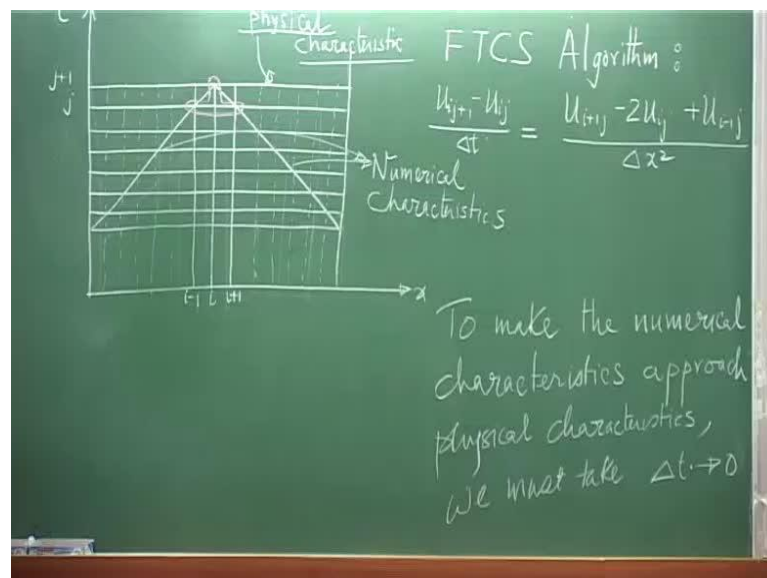 t
physical
characteristic
j+1
j
Numerical
Characteristics
i-1 i i+1
x
FTCS Algorithm :
u_{ij+1} - u_{ij} / Δt = u_{i+1j} - 2u_{ij} + u_{i-1j} / Δx²
To make the numerical
characteristics approach
physical characteristics,
we must take Δt → 0